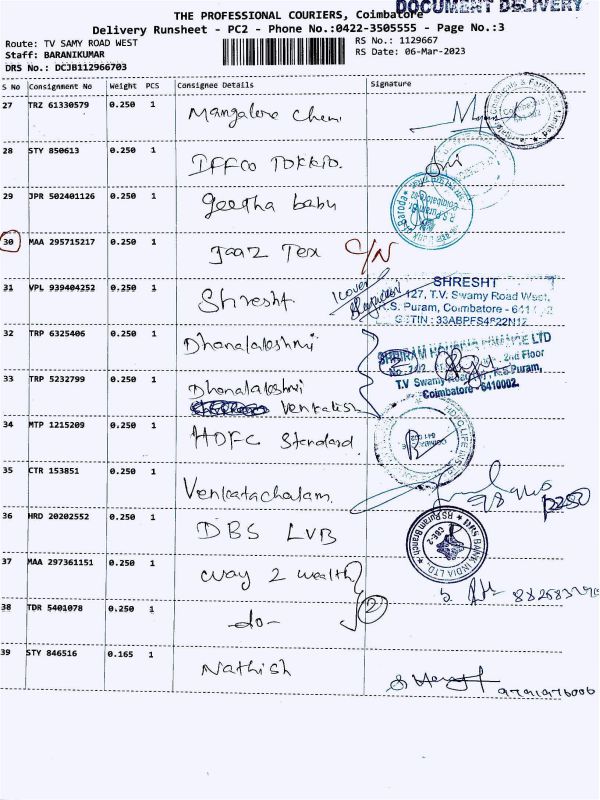 DOCUMENT DELIVERY
THE PROFESSIONAL COURIERS, Coimbatore
Delivery Runsheet - PC2 - Phone No.:0422-3505555 - Page No.:3
Route: TV SAMY ROAD WEST
RS No.: 1129667
Staff: BARANIKUMAR
RS Date: 06-Mar-2023
DRS No.: DCJB112966703
S No Consignment No Weight PCS Consignee Details Signature
27 TRZ 61330579 0.250 1 Mangalore Chem
28 STY 850613 0.250 1 IFFCO TOKKIO.
29 JPR 502401126 0.250 1 geetha babu
30 MAA 295715217 0.250 1 Jaaz Tex C/N
31 VPL 939404252 0.250 1 Shresht 1 cover
SHRESHT
127, T.V. Swamy Road West,
R.S. Puram, Coimbatore - 641
GSTIN : 33ABPFS4822N1Z
32 TRP 6325406 0.250 1 Dhanalakshmi
SHRIRAM HOUSING FINANCE LTD
2nd Floor
33 TRP 5232799 0.250 1 Dhanalakshmi
T.V Swamy Road R.S Puram,
Coimbatore - 6410002.
Venkatish
34 MTP 1215209 0.250 1 HDFC Standard
35 CTR 153851 0.250 1 Venkatachalam.
36 HRD 20202552 0.250 1 DBS LVB
DBS BANK INDIA LTD.
CBE-2
RS Puram Branch
37 MAA 297361151 0.250 1 way 2 wealth
38 TDR 5401078 0.250 1 -do- 2
39 STY 846516 0.165 1 Nathish
9791976006